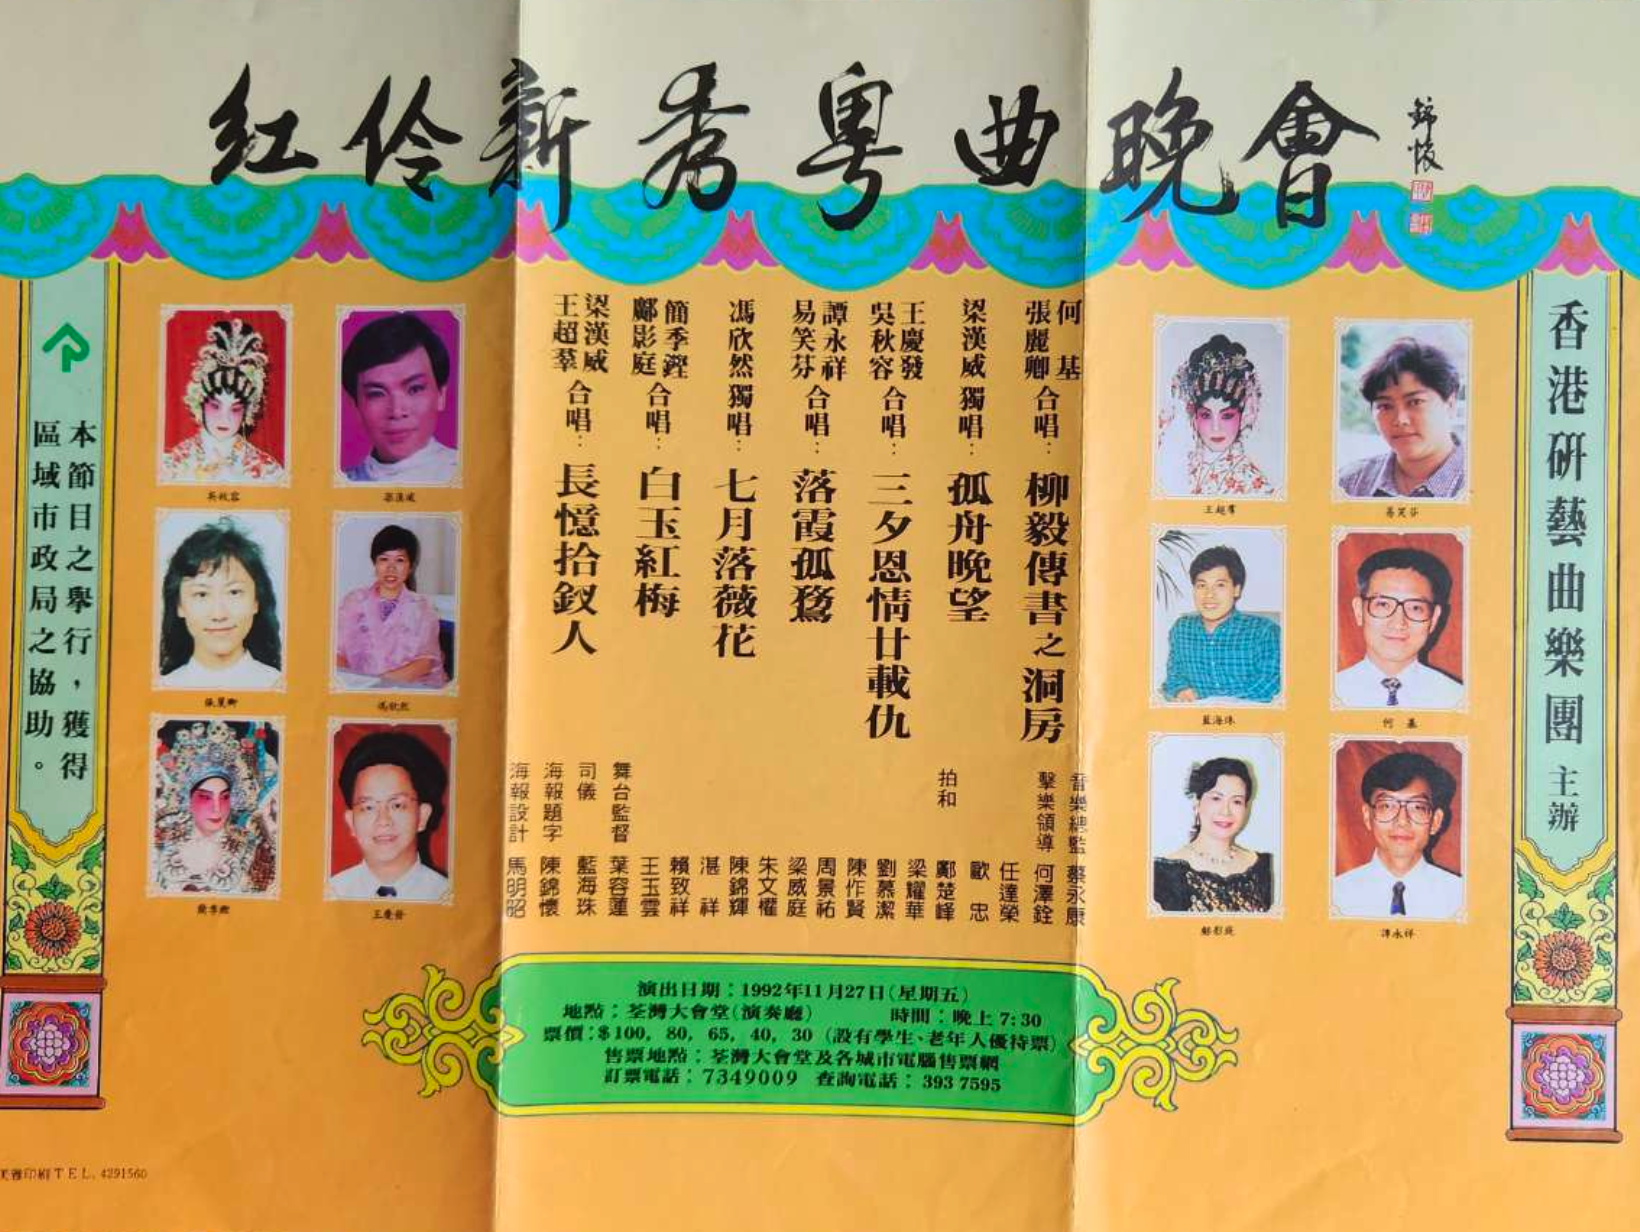 紅伶新秀粵曲晚會
錦懷
香港研藝曲樂團 主辦
何基
張麗卿 合唱：柳毅傳書之洞房
梁漢威 獨唱：孤舟晚望
王慶發
吳秋容 合唱：三夕恩情廿載仇
譚永祥
易笑芬 合唱：落霞孤鶩
馮欣然 獨唱：七月落薇花
簡季鏗
鄺影庭 合唱：白玉紅梅
梁漢威
王超羣 合唱：長憶拾釵人
音樂總監 蔡永康
擊樂領導 何澤銓
任達榮
歐 忠
拍和 鄺楚峰
梁耀華
劉慕潔
陳作賢
周景祐
梁威庭
朱文櫂
陳錦輝
湛 祥
賴致祥
王玉雲
舞台監督 葉容蓮
司儀 藍海珠
海報題字 陳錦懷
海報設計 馬明昭
本節目之舉行，獲得
區域市政局之協助。
吳秋容
梁漢威
張麗卿
馮欣然
簡季鏗
王慶發
王超羣
易笑芬
藍海珠
何 基
鄺影庭
譚永祥
演出日期：1992年11月27日(星期五)
地點：荃灣大會堂(演奏廳) 時間：晚上 7:30
票價：$100, 80, 65, 40, 30 (設有學生、老年人優待票)
售票地點：荃灣大會堂及各城市電腦售票網
訂票電話：7349009 查詢電話：393 7595
印刷 TEL. 4291560